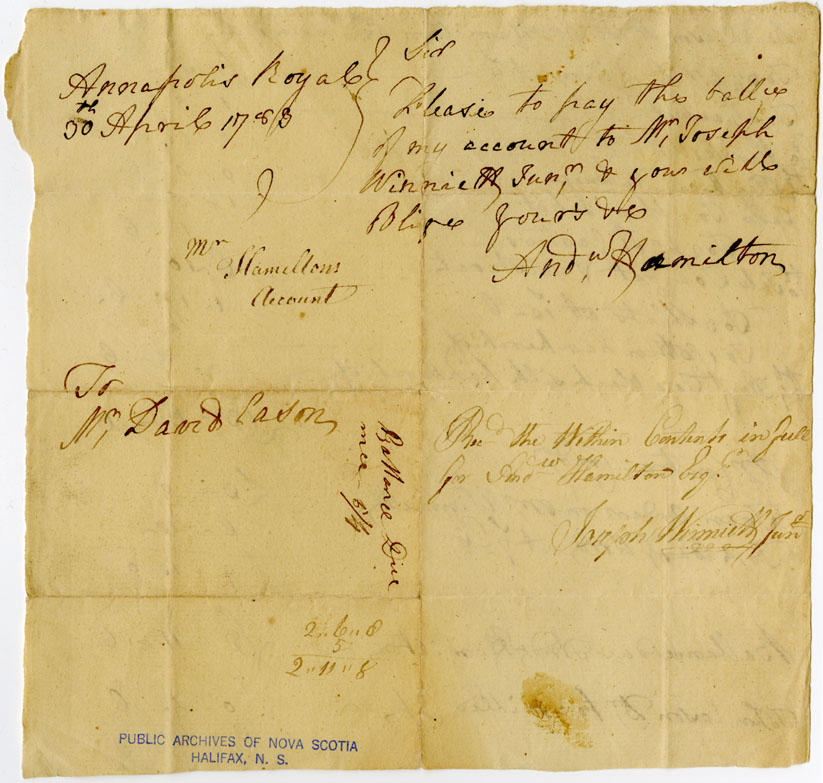 Annapolis Royal
30th April 1783
Sir
Please to pay the ballce
of my account to Mr, Joseph
Winniett Junr, & you will
Blige yours &c
Andw, Hamilton
Mr
Hamiltons
Account
To
Mr, David Eason
Ballance Due
mee
Recd the Within Contents in full
for Andw Hamilton Esqr
Joseph Winniett Junr
2 " 6 " 8
5
2 " 11 " 8
PUBLIC ARCHIVES OF NOVA SCOTIA
HALIFAX, N. S.